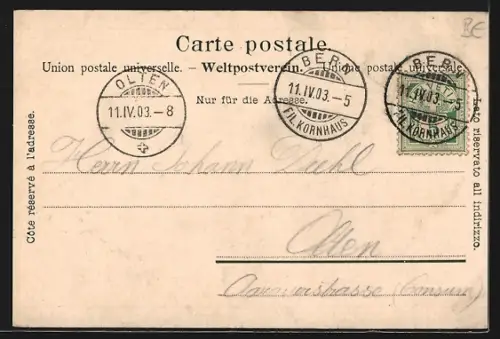 BE
Carte postale.
Union postale universelle. – Weltpostverein. – Unione postale universale.
Nur für die Adresse.
OLTEN
11.IV.03.–8
BERN
11.IV.03.–5
FIL.KORNHAUS
BERN
11.IV.03.–5
FIL.KORNHAUS
Côte réservé à l'adresse.
Lato riservato all indirizzo.
Herrn Johann Diehl
Olten
(Consum)